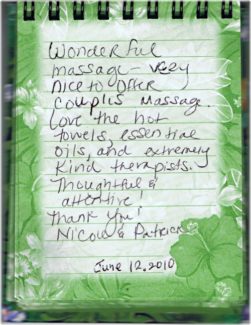 Wonderful
massage - very
nice to offer
couples massage.
Love the hot
towels, essential
oils, and extremely
kind therapists.
Thoughtful &
attentive!
Thank you!
Nicole & Patrick
June 12, 2010